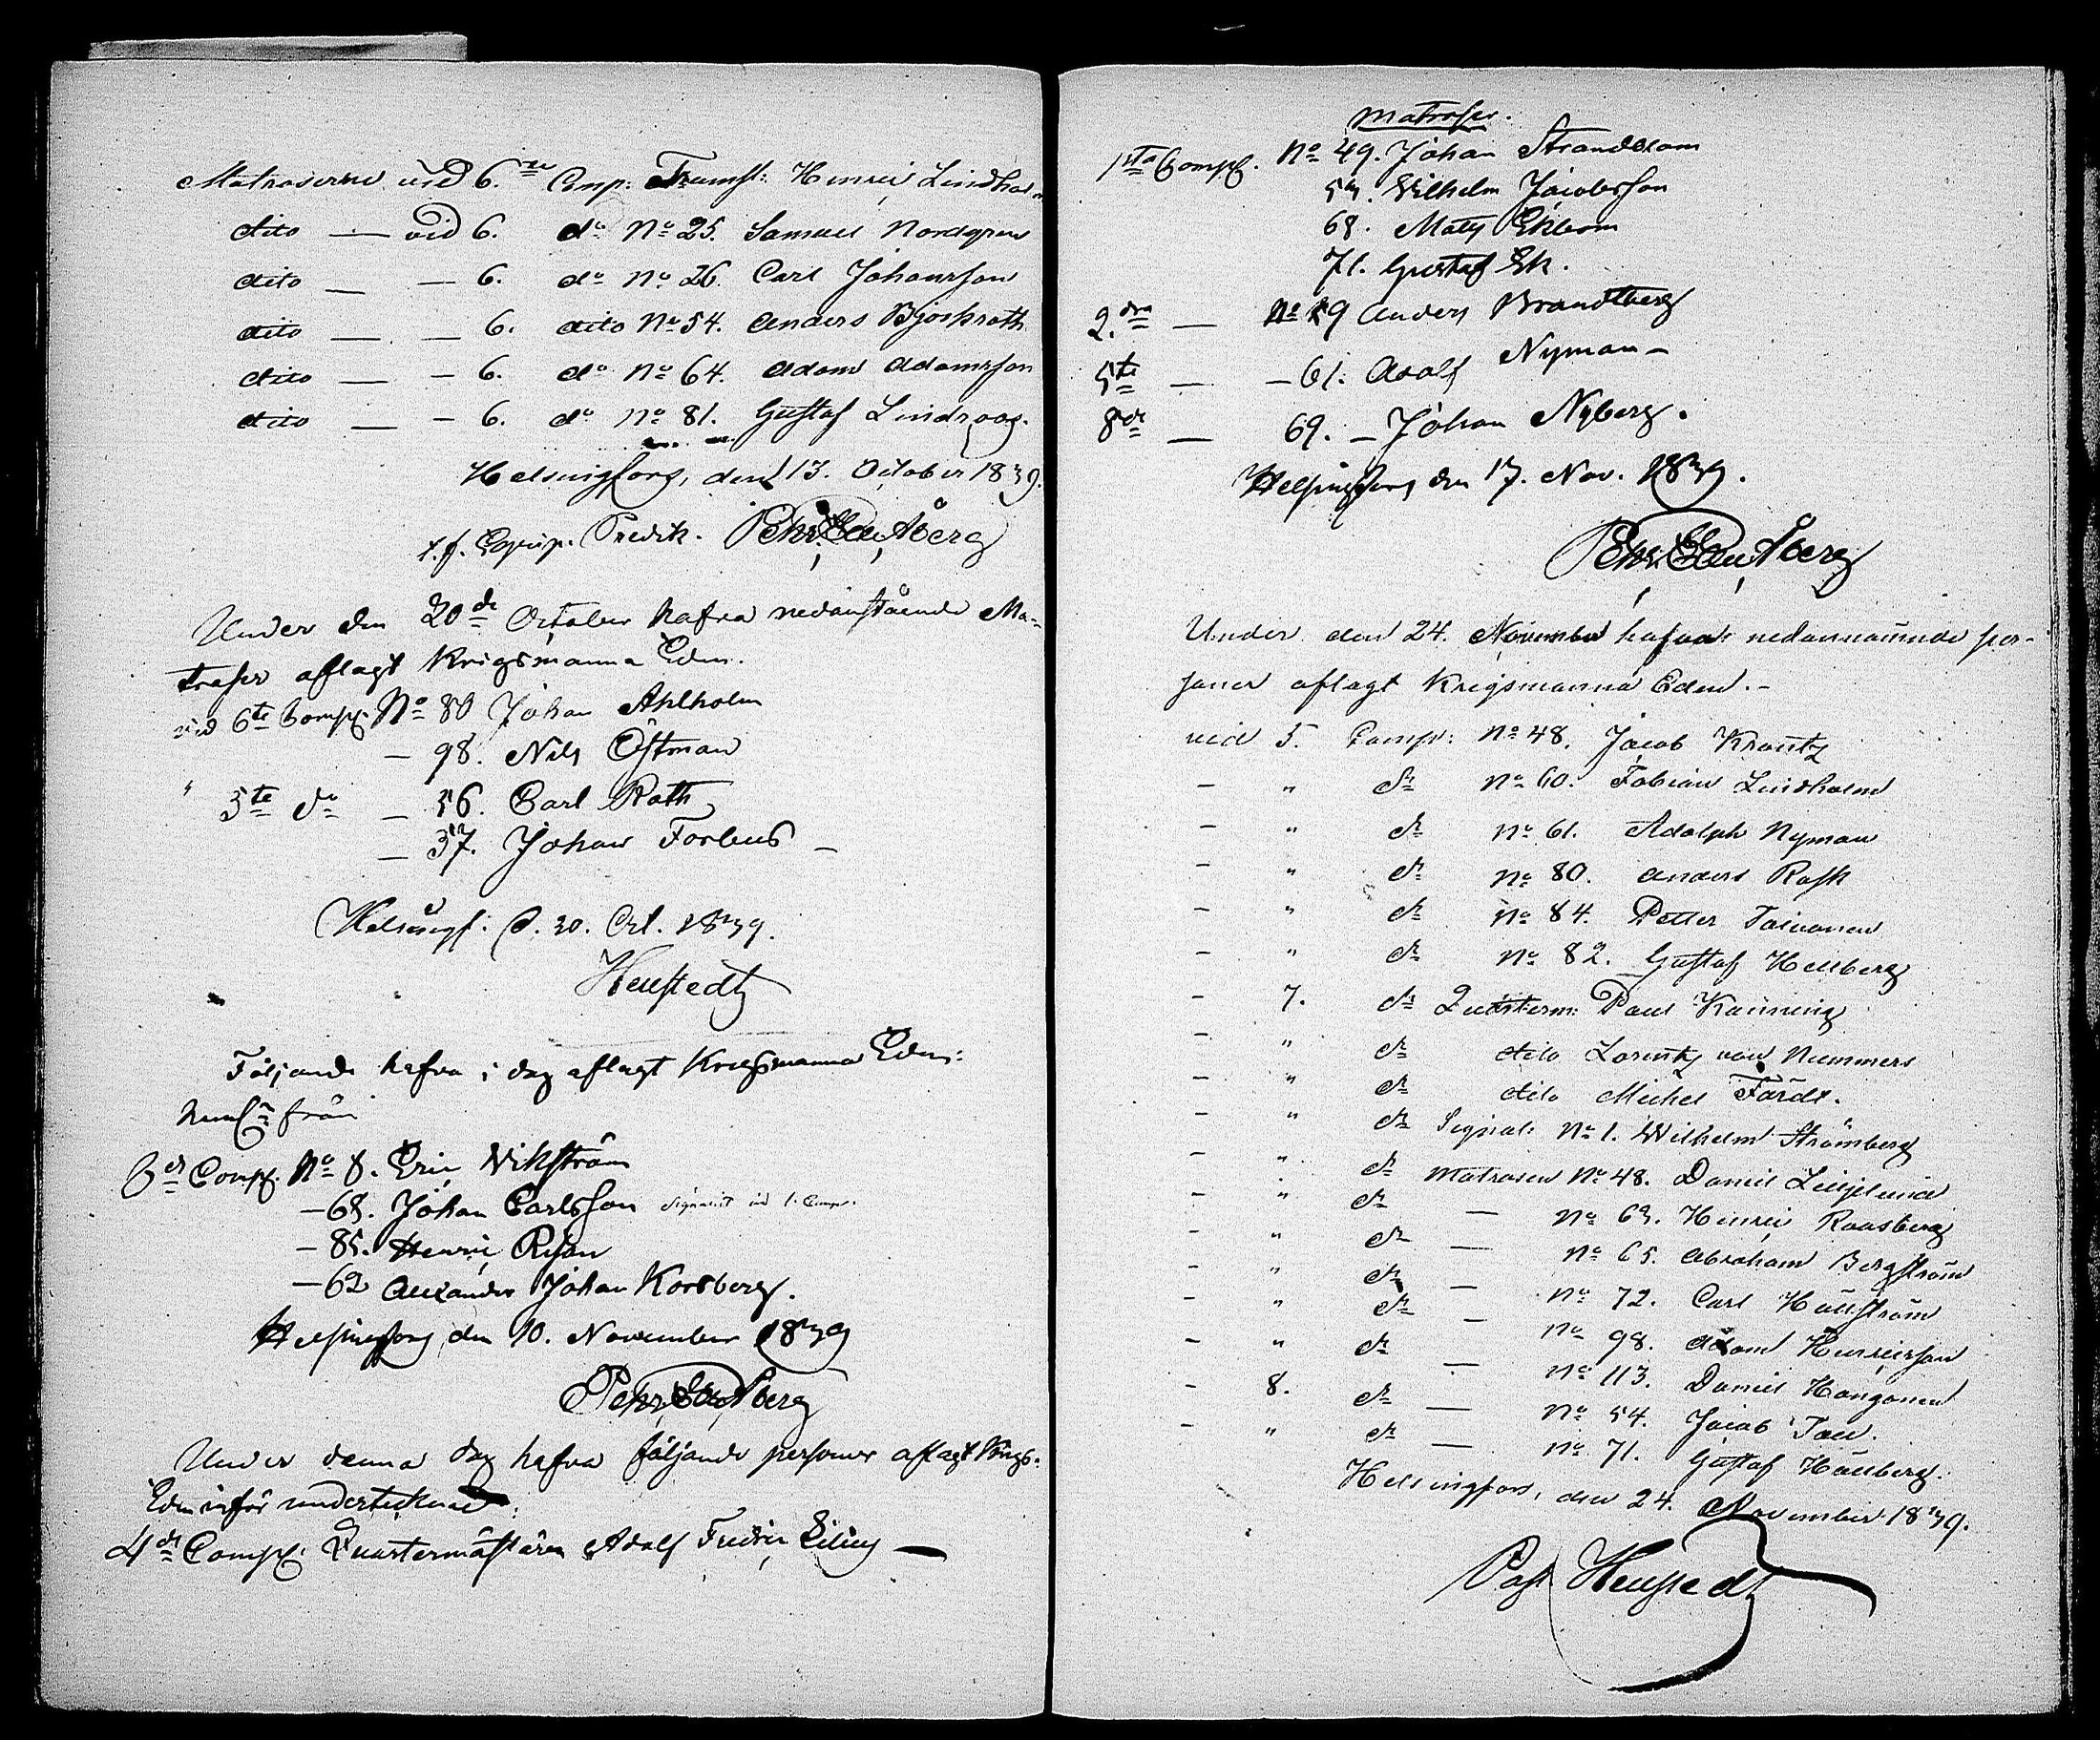 Matroserne vid 6.te Comp: Trumsl: Henric Lindholm
dito — vid 6. do No 25. Samuel Nordgren
dito — — 6. do No 26. Carl Johansson
dito — — 6. dito No 54. Anders Björkroth
dito — — 6. do No 64. Adam Adamsson
dito — — 6. do No 81. Gustaf Lindroos.
Helsingfors, den 13. October 1839.
t.f. Equip. Predik. Pehr Edv. Åberg
Under den 20de October hafva nedanstående Ma-
troser aflagt Krigsmanna Eden.
vid 6te Comp. No 80 Johan Ahlholm
— 98. Nils Östman
" 5te do — 56. Carl Roth
— 37. Johan Forbus —
Helsingf: d. 20. Oct. 1839.
Hellstedt
Följande hafva i dag aflagt Krigsmanna Eden:
från
3de Comp. No 8. Eric Wikström
— 68. Johan Carlsson Signalist vid 1. Comp.
— 85. Henric
— 62 Alexander Johan Korsberg.
Helsingfors den 10. November 1839
Pehr Edv. Åberg
Under denna dag hafva följande personer aflagt Krigs-
Eden inför undertecknad:
4de Comp. Quartermästaren Adolf Fredric —
Matroser.
1sta Comp. No 49. Johan Strandman
53. Wilhelm Jacobsson
68. Matts Ekbom
71. Gustaf Ek.
2.dra — No 29 Anders Brandtberg
5te — — 61. Adolf Nyman —
8de — 69. — Johan Nyberg.
Helsingfors den 17. Nov. 1839.
Pehr Edv. Åberg
Under den 24. November hafva nedannämnde per-
soner aflagt Krigsmanna Eden. —
vid 5. Comp: No 48. Jacob Krantz
— " do No 60. Fabian Lindholm
— " do No 61. Adolph Nyman
— " do No 80. Anders Rask
— " do No 84. Petter Toivonen
— " do No 82. Gustaf Hellberg
— 7. do Quarterm: Paul Kanning
— " do dito Lorentz von Nummers
— " do dito Michel Färdt.
— " do Signal: No 1. Wilhelm Strömberg
— " do Matrosen No 48. Daniel Liljelund
— " do — No 62. Henric Roosberg
— " do — No 65. Abraham Bergström
— " do — No 72. Carl Hällström
— " do — No 98. Adam Henricsson
— " do — No 113. Daniel Hangonen
— 8. do — No 54. Jacob Tall.
— " do — No 71. Gustaf Hällberg.
Helsingfors, den 24. November 1839.
Past Hellstedt